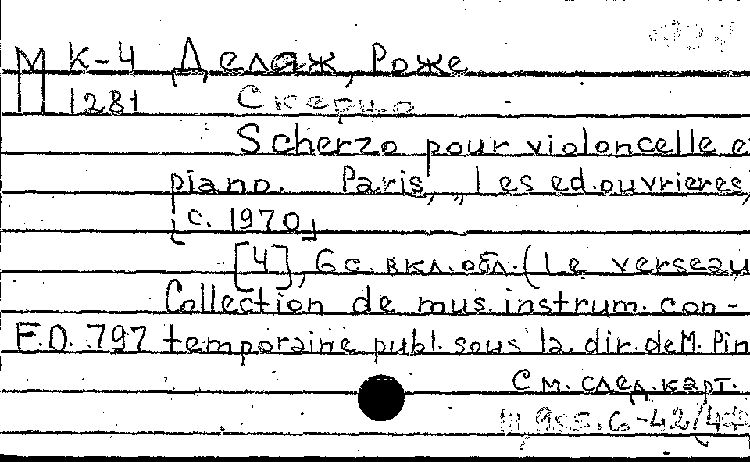 М К-4 Делаж, Роже
1281 Скерцо
Scherzo pour violoncelle e
piano. Paris, „Les ed. ouvrieres,
[с. 1970]
[4], 6 с. вкл. обл. (Le verseau
Collection de mus. instrum. con-
E.O. 797 temporaine publ. sous la dir. de M. Pin
См. след. карт.